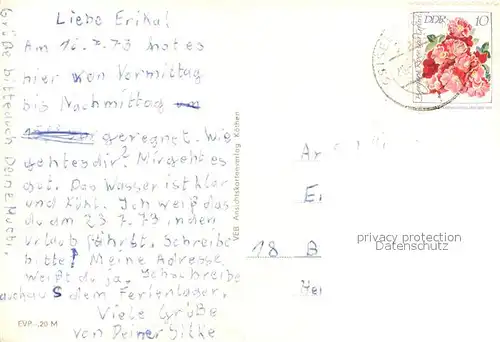 Liebe Erika!
Am 16.7.73 hat es
hier von Vormittag
bis Nachmittag
geregnet. Wie
geht es dir? Mir geht es
gut. Das Wasser ist klar
und kühl. Ich weiß das
du am 23.7.73 in den
Urlaub fährst. Schreibe
bitte! Meine Adresse
weißt du ja. Ich schreibe
auch aus dem Ferienlager.
Viele Grüße
von Deiner Silke
Grüße bitte doch Deine Mutti.
EVP -,20 M
VEB Ansichtskartenverlag Köthen
DDR 10
An
18 B
privacy protection
Datenschutz